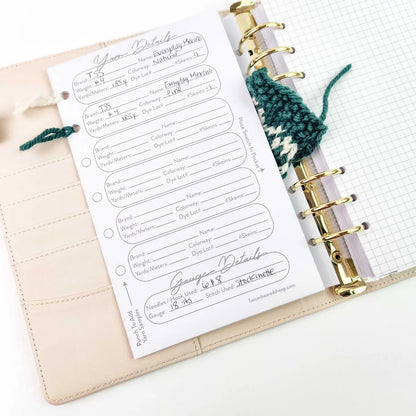 Yarn Details
Brand: TSS Name: Everyday Merino
Weight: #4 Colorway: Natural
Yards/Meters: 185y Dye Lot#: #Skeins: ~1
Brand: TSS Name: Everyday Merino
Weight: #4 Colorway: Pine
Yards/Meters: 185y Dye Lot#: #Skeins: ~1
Brand: Name:
Weight: Colorway:
Yards/Meters: Dye Lot#: #Skeins:
Brand: Name:
Weight: Colorway:
Yards/Meters: Dye Lot#: #Skeins:
Brand: Name:
Weight: Colorway:
Yards/Meters: Dye Lot#: #Skeins:
Brand: Name:
Weight: Colorway:
Yards/Meters: Dye Lot#: #Skeins:
Gauge Details
Needles / Hook Used: 6 & 8
Gauge: 18 sts Stitch Used: Stockinette
Punch To Add
Yarn Samples
Place Swatch In Pocket